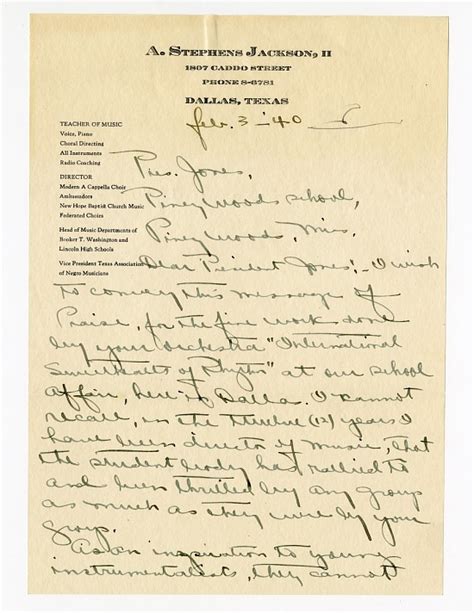 A. STEPHENS JACKSON, II
1807 CADDO STREET
PHONE 8-6781
DALLAS, TEXAS
feb. 3 - '40
TEACHER OF MUSIC
Voice, Piano
Choral Directing
All Instruments
Radio Coaching
DIRECTOR
Modern A Cappella Choir
Ambassadors
New Hope Baptist Church Music
Federated Choirs
Head of Music Departments of
Booker T. Washington and
Lincoln High Schools
Vice President Texas Association
of Negro Musicians
Pres. Jones,
Piney Woods School,
Piney Woods, Miss.
Dear President Jones: - I wish
to convey this message of
Praise, for the fine work done
by your orchestra "International
Sweethearts of Rhythm" at our school
affair, here in Dallas. I cannot
recall, in the twelve (12) years I
have been director of music, that
the student body has rallied to
and been thrilled by any group
as much as they were by your
group.
As an inspiration to young
instrumentalists, they cannot